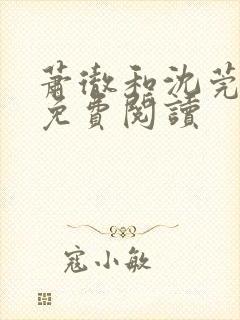 萧徹和沈莞
免費閱讀
寇小敏